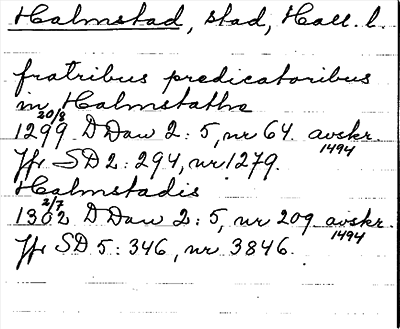 Halmstad, stad, Hall. l.
fratribus predicatoribus
in Halmstathe
20/8
1299 DDan 2:5, nr 64. avskr.
1494
Jfr SD 2:294, nr 1279.
Halmstadis
2/7
1302 DDan 2:5, nr 209 avskr.
1494
Jfr SD 5:346, nr 3846.